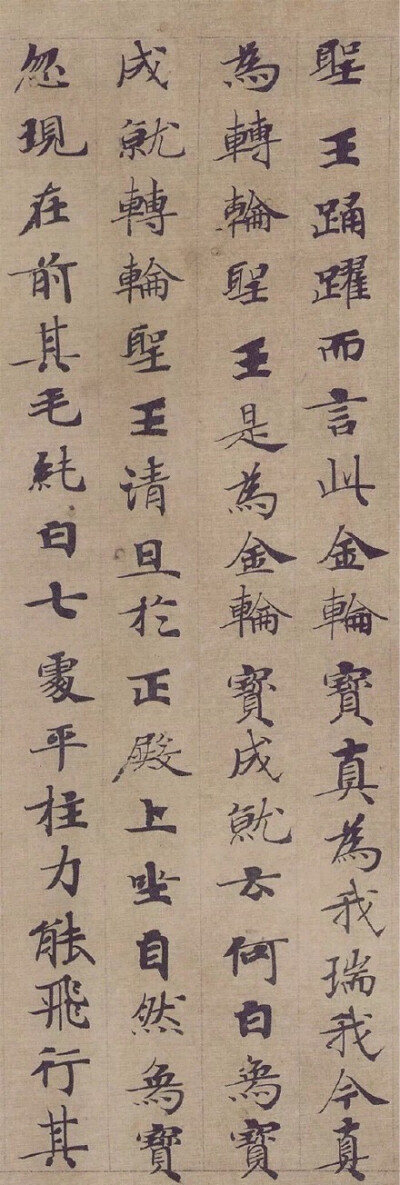 聖王踊躍而言此金輪寶真為我瑞我今真
為轉輪聖王是為金輪寶成就云何白象寶
成就轉輪聖王清旦於正殿上坐自然象寶
忽現在前其毛純白七處平柱力能飛行其